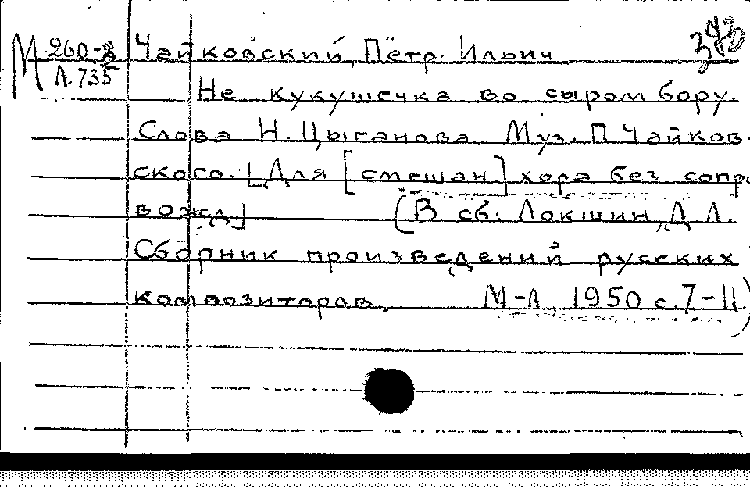 М 260-8 Чайковский, Пётр Ильич 343
Л.735
Не кукушечка во сыром бору.
Слова Н. Цыганова. Муз. П. Чайков-
ского. [Для [смешан] хора без сопр.
вожд.] (В сб. Локшин, Д.Л.
Сборник произведений русских
композиторов. М-Л. 1950 с. 7-11)